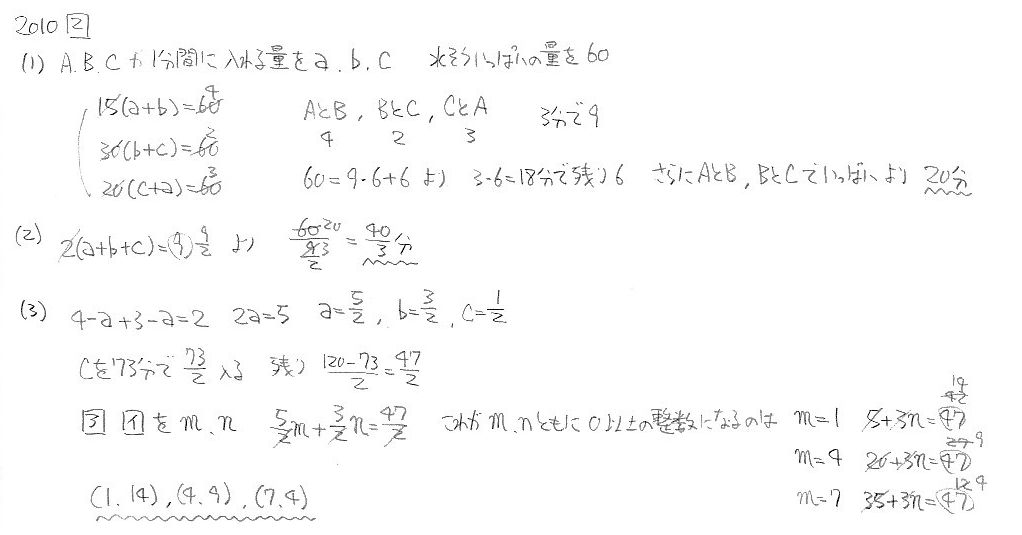 2010 2
(1) A.B.Cが1分間に入れる量をa.b.c 水そういっぱいの量を60
15(a+b)=60 4 AとB, BとC, CとA 3分で9
30(b+c)=60 2 4 2 3
20(c+a)=60 3 60=9・6+6より 3・6=18分で残り6 さらにAとB, BとCでいっぱいより 20分
(2) 2(a+b+c)=9 9/2 より 60 20/(9 3/2) = 40/3分
(3) 4-a+3-a=2 2a=5 a=5/2, b=3/2, c=1/2
Cを73分で 73/2 入る 残り (120-73)/2=47/2
ア イ を m、n 5/2m+3/2n=47/2 これが m、nともに0以上の整数になるのは m=1 5+3n=47 42 14
m=4 20+3n=47 27 9
m=7 35+3n=47 12 4
(1,14),(4,9),(7,4)